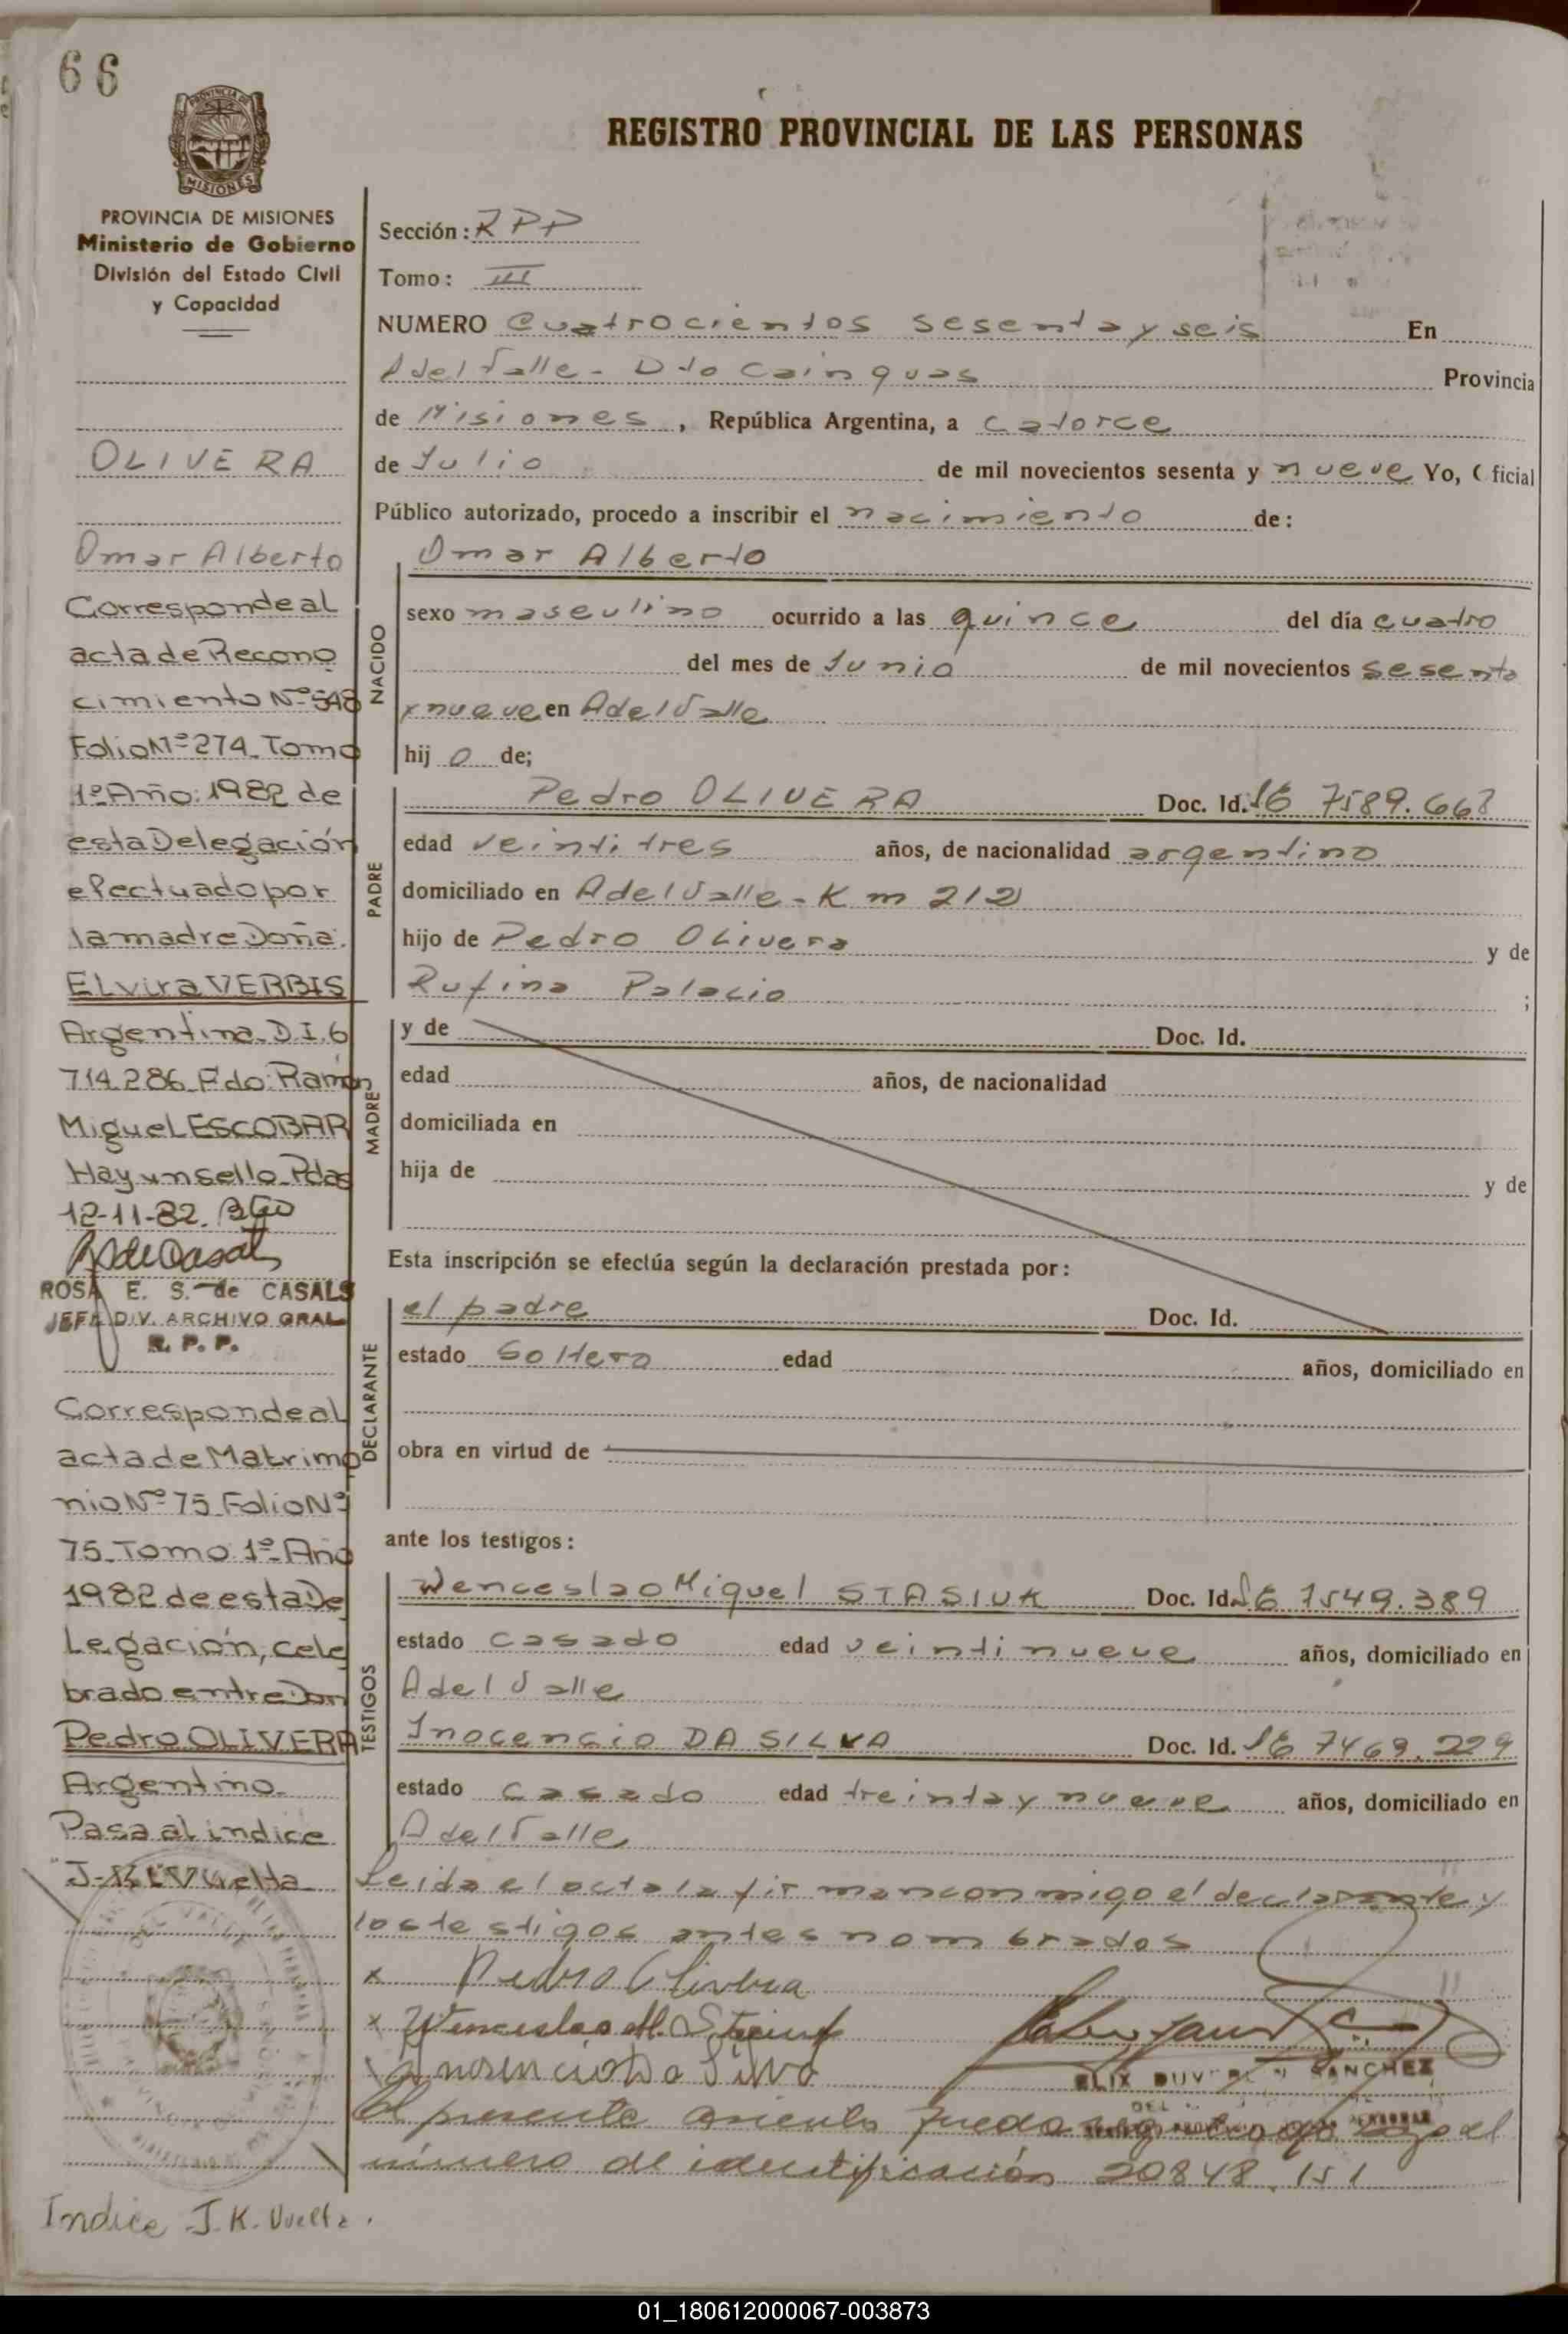 66
PROVINCIA DE MISIONES
Ministerio de Gobierno
División del Estado Civil
y Capacidad
OLIVERA
Omar Alberto
Corresponde al
acta de Recono
cimiento Nº 548
Folio Nº 274 Tomo
1º Año: 1982 de
esta Delegación
efectuado por
la madre Doña:
Elvira VERBIS
Argentina D.I. 6
714.286 Fdo: Ramón
Miguel ESCOBAR
Hay un sello Pdas
12-11-82.
ROSA E. S. de CASALS
JEFA DIV. ARCHIVO GRAL
R. P. P.
Corresponde al
acta de Matrimo
nio Nº 75 Folio Nº
75 Tomo 1º Año
1982 de esta De
legación, cele
brado entre Don
Pedro OLIVERA
Argentino.
Pasa al indice
Vuelta
Indice J.K. Vuelta.
REGISTRO PROVINCIAL DE LAS PERSONAS
Sección: RPP
Tomo: III
NUMERO Cuatrocientos sesenta y seis En
A del Valle - Dto Cainguas Provincia
de Misiones, República Argentina, a catorce
de Julio de mil novecientos sesenta y nueve Yo, Oficial
Público autorizado, procedo a inscribir el nacimiento de:
NACIDO
Omar Alberto
sexo masculino ocurrido a las quince del día cuatro
del mes de Junio de mil novecientos sesenta
y nueve en A del Valle
hijo de;
PADRE
Pedro OLIVERA Doc. Id. 7589.668
edad veintitres años, de nacionalidad argentino
domiciliado en A del Valle - Km 212
hijo de Pedro Olivera y de
Rufina Palacio ;
MADRE
y de Doc. Id.
edad años, de nacionalidad
domiciliada en
hija de y de
Esta inscripción se efectúa según la declaración prestada por:
DECLARANTE
el padre Doc. Id.
estado Soltero edad años, domiciliado en
obra en virtud de
ante los testigos:
TESTIGOS
Wenceslao Miguel STASIUK Doc. Id. 7549.389
estado casado edad veintinueve años, domiciliado en
A del Valle
Inocencio DA SILVA Doc. Id. 7469.229
estado casado edad treinta y nueve años, domiciliado en
A del Valle
Leida el acta la firman conmigo el declarante y
los testigos antes nombrados
x Pedro Olivera
x Wenceslao M. Stasiuk
x Inosencio Da Silva
SANCHEZ
El presente asiento queda bajo el
número de identificación 20848.151
01_180612000067-003873